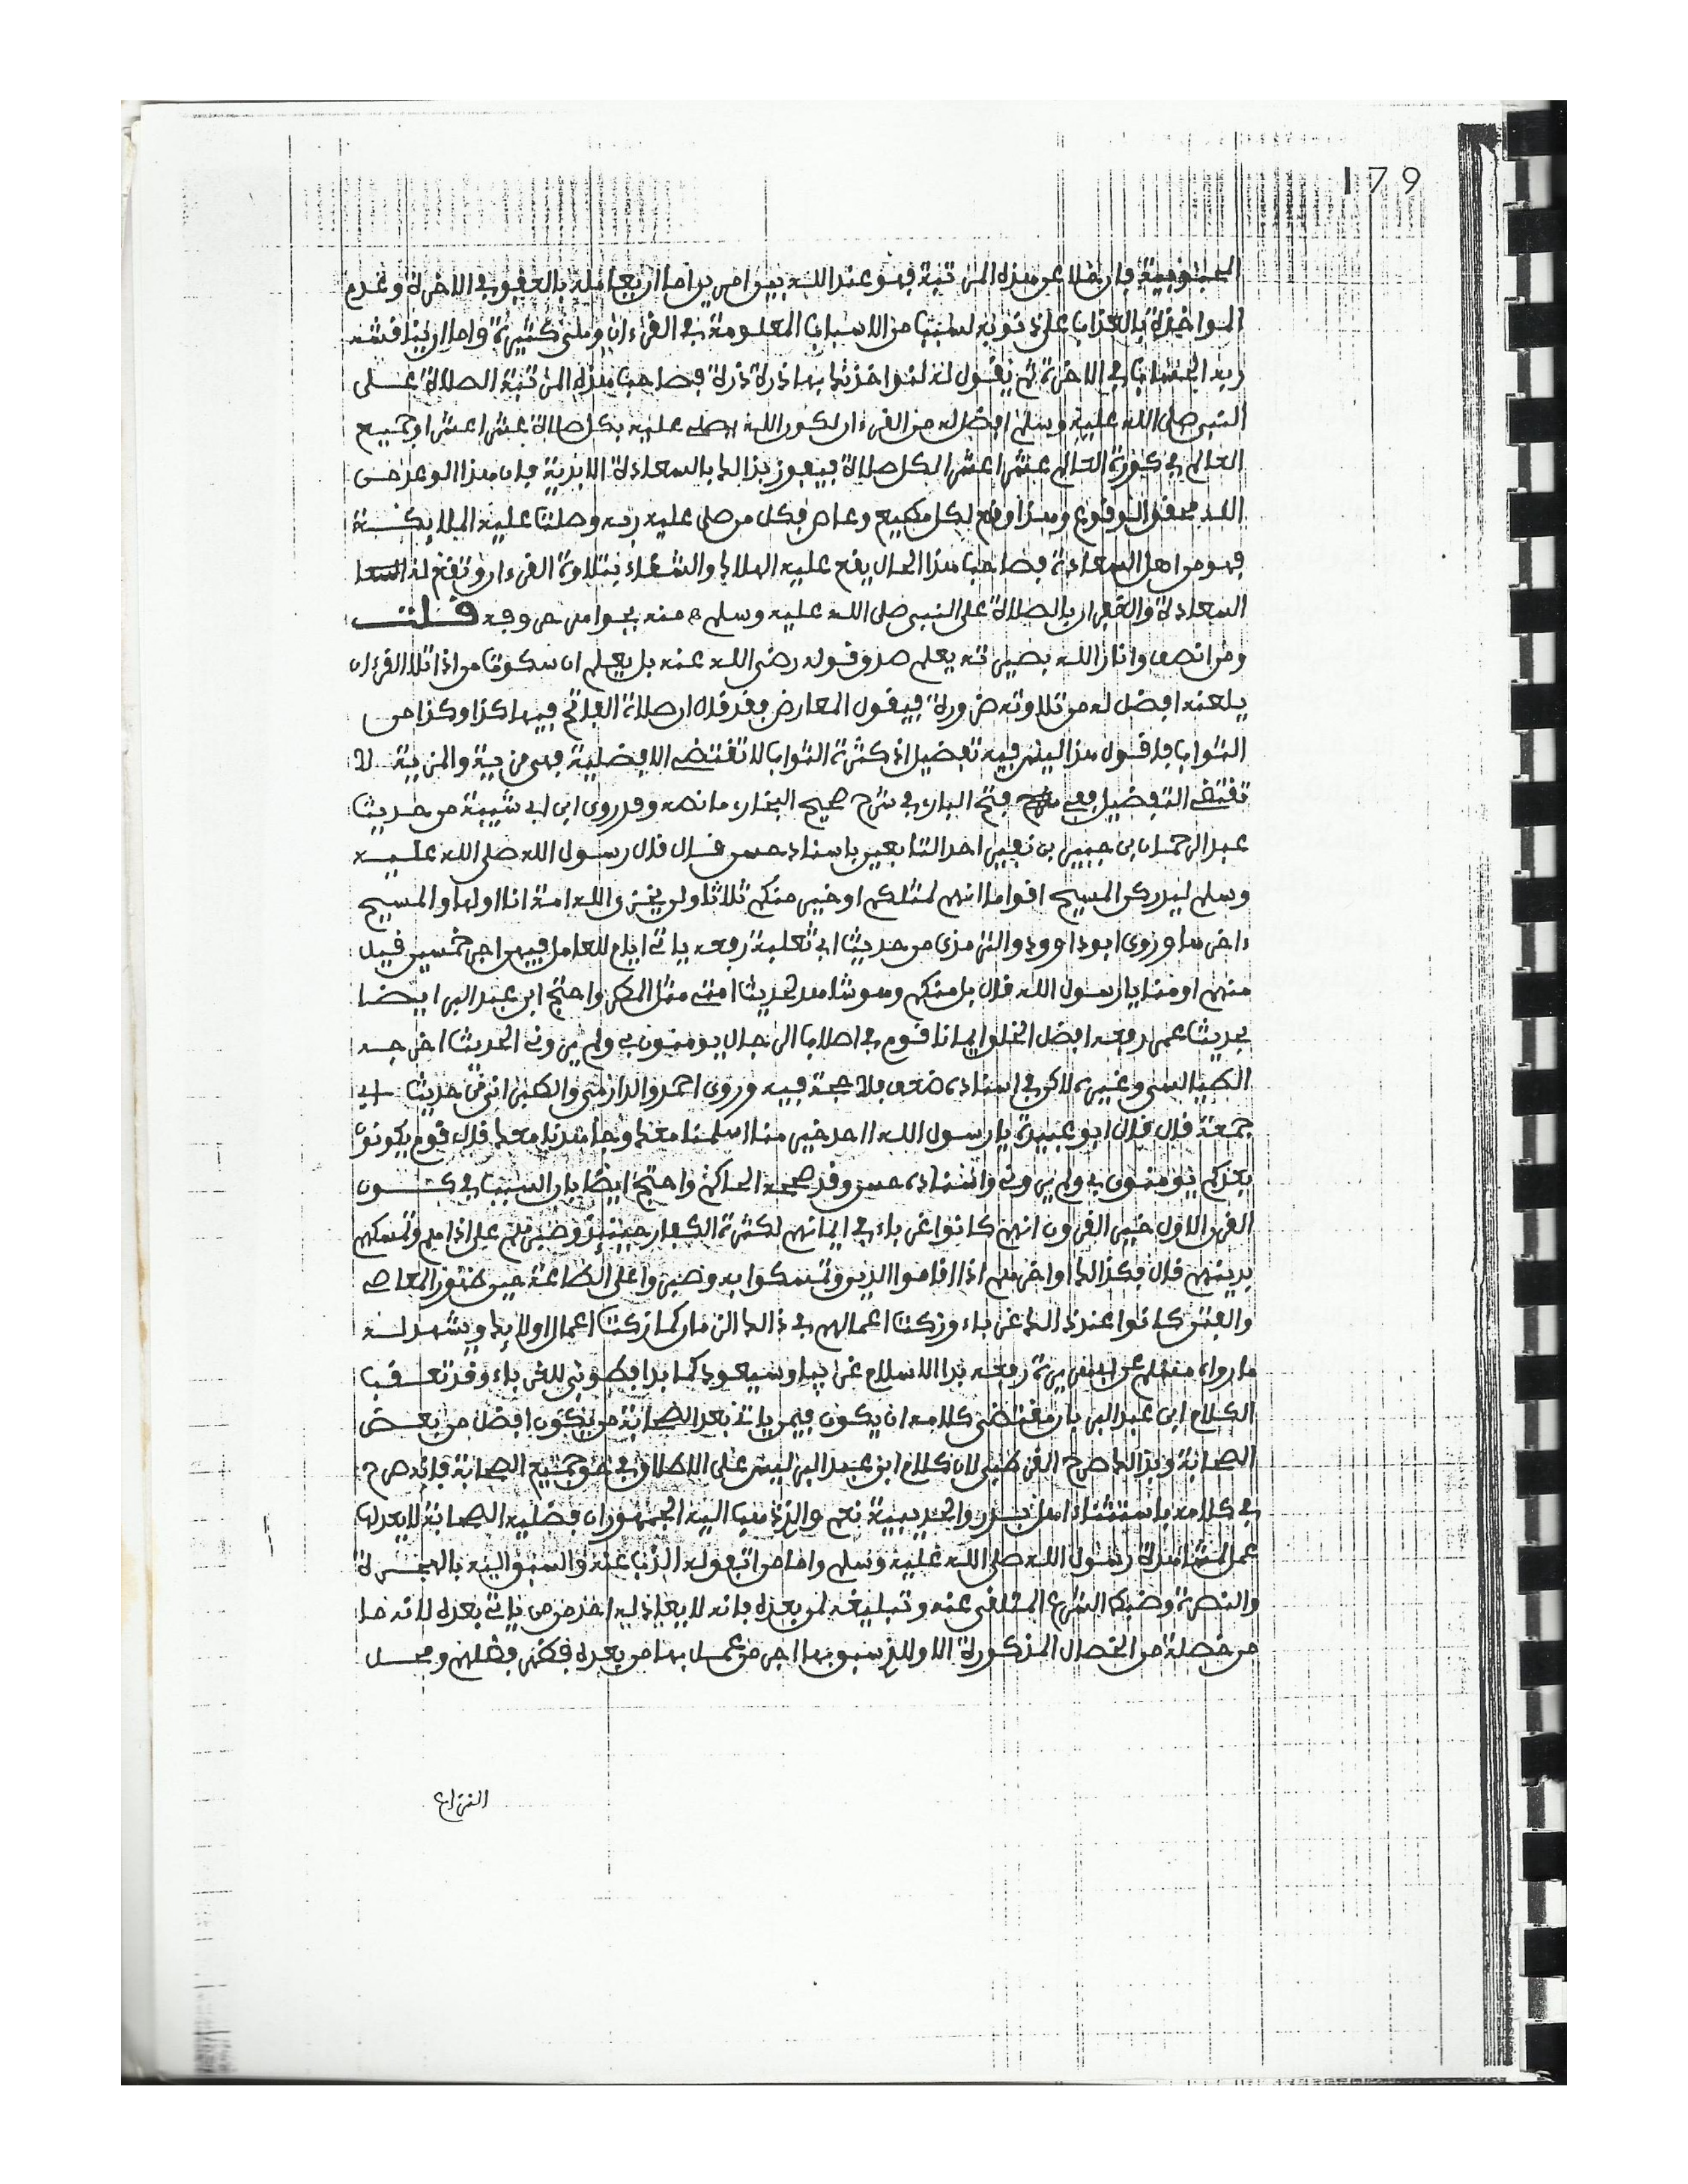 179
فان خلا عن هذه المرتبة فهو عند الله بين امرين اما ان يعامله بالعفو في الاخرة وعدم
المواخذة بالعذاب على ذنوبه لسبب من الاسباب المعلومة في القرءان وهي كثيرة واما ان يناقشه
ربه الحساب في الاخرة ثم يقول له لنواخذنك بها ذرة ذرة فصاحب هذه المرتبة الصلاة على
النبي صلى الله عليه وسلم افضل له من القرءان لكون الله يصلي عليه بكل صلاة عشرا عشرا وجميع
العالم في كورة العالم عشرا عشرا لكل صلاة فيفوز بذالك بالسعادة الابدية فان هذا الوعد من
الله محقق الوقوع وهذا واقع لكل مطيع وعاص فكل من صلى عليه ربه وصلت عليه الملايكة
فهو من اهل السعادة فصاحب هذا الحال يقع عليه الهلاك والشقاء بتلاوة القرءان وتقع له السعا
السعادة والغفران بالصلاة على النبي صلى الله عليه وسلم ه منه بجواهر حروفه قلت
ومن انصف وانار الله بصيرته يعلم صدق قوله رضي الله عنه بل يعلم ان سكوت من اذا تلا القرءان
يلعنه افضل له من تلاوته ضرورة فيقول المعارض فقد قال ان صلاة الفاتح فيها كذا وكذا من
الثواب فاقول هذا ليس فيه تفضيل اذ كثرة الثواب لا تقتضي الافضلية فهي مزية والمزية لا
تقتضي التفضيل ففي فتح الباري في شرح صحيح البخاري ما نصه وقد روى ابن ابي شيبة من حديث
عبد الرحمان بن جبير بن نفير احد التابعين باسناد حسن قال قال رسول الله صلى الله عليه
وسلم ليدركن المسيح اقواما انهم لمثلكم او خير منكم ثلاثا ولن يخزي الله امة انا اولها والمسيح
ءاخرها وروى ابو داوود والترمذي من حديث ابي ثعلبة رفعه ياتي ايام للعامل فيهن اجر خمسين قيل
منهم او منا يا رسول الله قال بل منكم وهو شاهد لحديث امتي مثل المطر واحتج ابن عبد البر ايضا
بحديث عمر رفعه افضل الخلق ايمانا قوم في اصلاب الرجال يومنون بي ولم يروني الحديث اخرجه
الطيالسي وغيره لاكن في اسناده ضعف فلا حجة فيه وروى احمد والدارمي والطبراني من حديث ابي
جمعة قال قال ابو عبيدة يا رسول الله ااحد خير منا اسلمنا معك وجاهدنا معك قال قوم يكونون
بعدكم يومنون بي ولم يروني واسناده حسن وقد صححه الحاكم واحتج ايضا بان السبب في كون
القرن الاول خير القرون انهم كانوا غرباء في ايمانهم لكثرة الكفار حينئذ وصبرهم على اذاهم وتمسكهم
بدينهم قال فكذالك اواخرهم اذا اقاموا الدين وتمسكوا به وصبروا على الطاعة حين ظهور المعاصي
والفتن كانوا عند ذالك غرباء وزكت اعمالهم في ذالك الزمان كما زكت اعمال اولائك ويشهد له
ما رواه مسلم عن ابي هريرة رفعه بدا الاسلام غريبا وسيعود كما بدا فطوبى للغرباء وقد تعقب
الكلام ابن عبد البر بان مقتضى كلامه ان يكون فيمن ياتي بعد الصحابة من يكون افضل من بعض
الصحابة وبذالك صرح القرطبي لان كلام ابن عبد البر ليس على الاطلاق في حق جميع الصحابة فانه صرح
في كلامه باستثناء اهل بدر والحديبية نعم والذي ذهب اليه الجمهور ان فضلية الصحابة لا يعدلها
عمل لمشاهدة رسول الله صلى الله عليه وسلم واما من اتفق له الذب عنه والسبق اليه بالهجرة
والنصرة وضبط الشرع المتلقى عنه وتبليغه لمن بعده فانه لا يعادله احد ممن ياتي بعده لانه ما
من خصلة من الخصال المذكورة الا وللذي سبق بها اجر من عمل بها من بعده فظهر فضلهم ومحل
النزاع